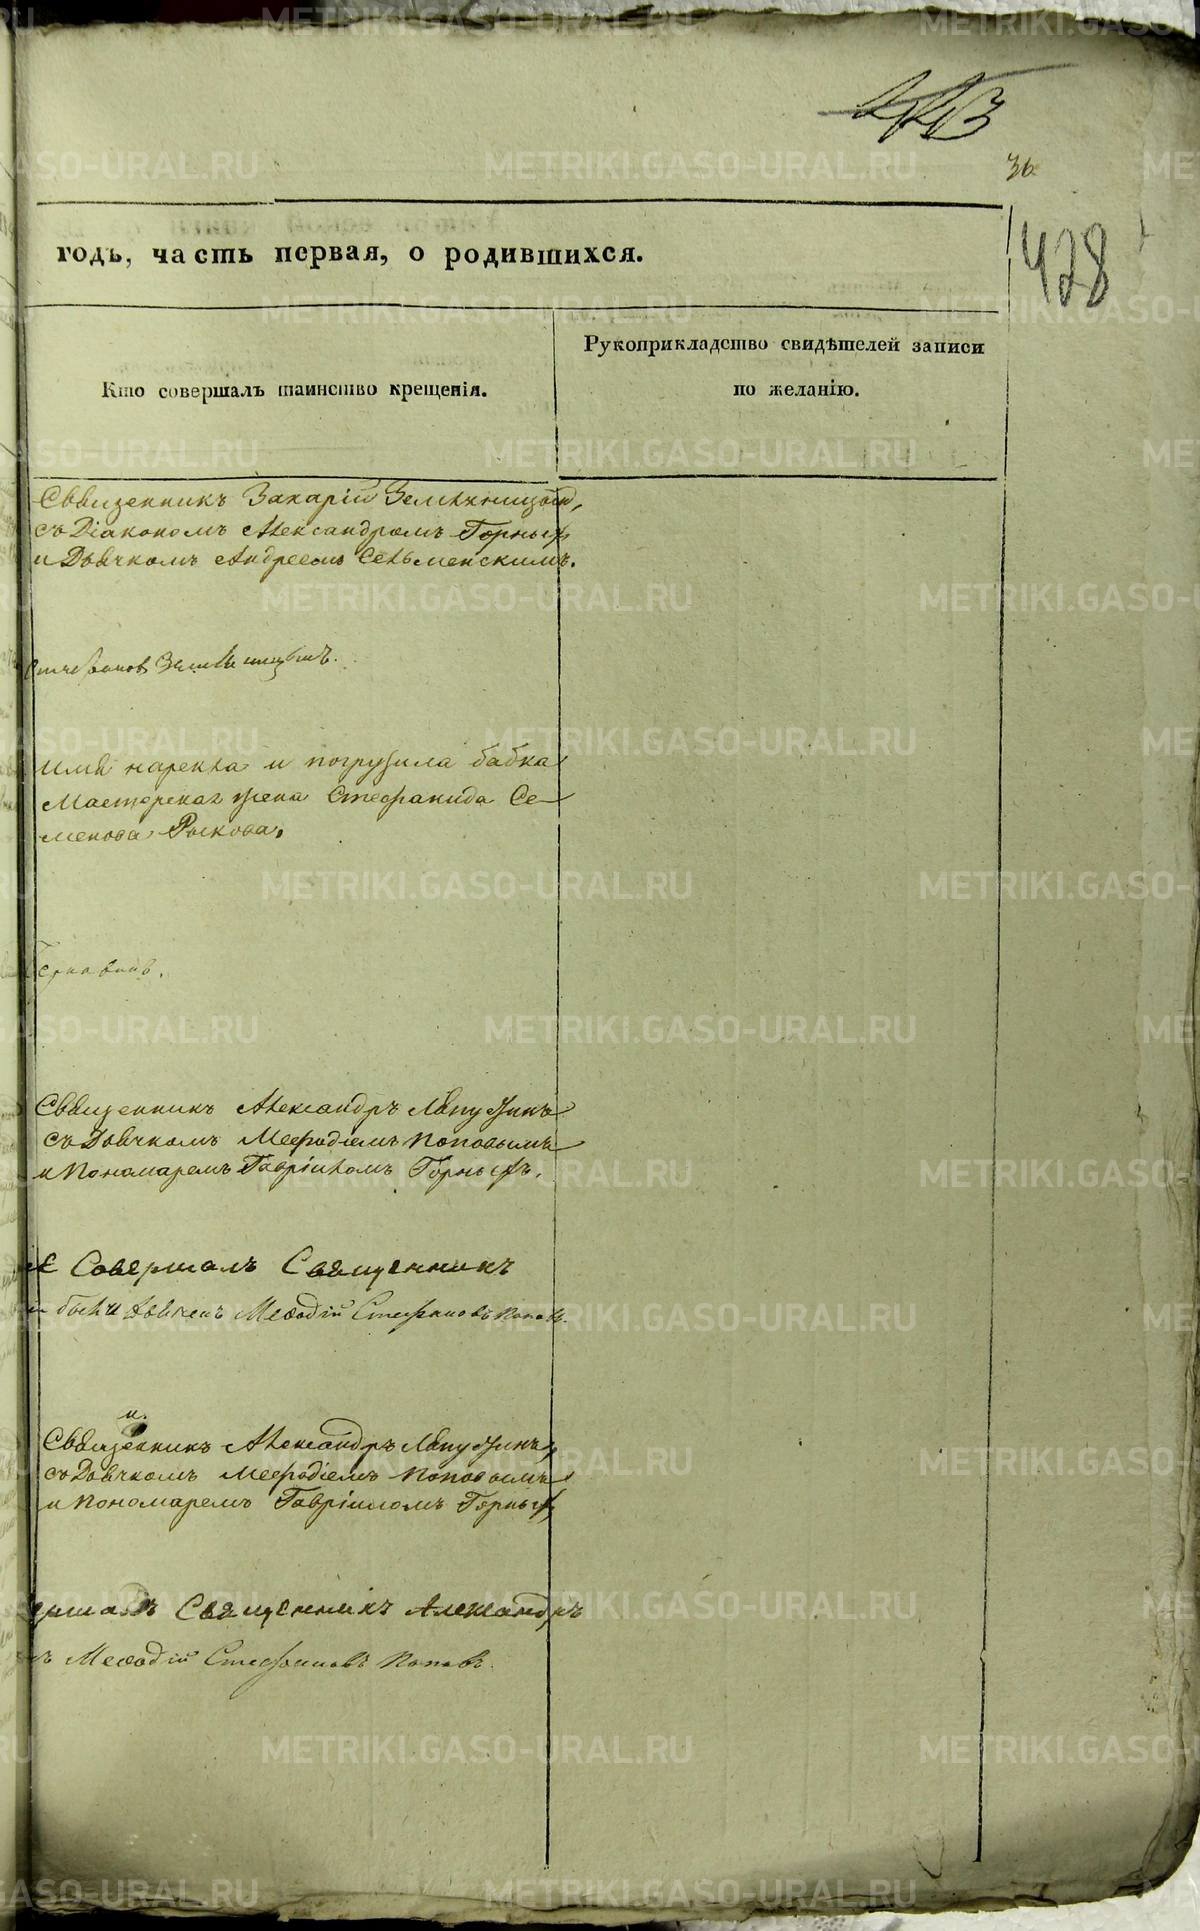 36
428
годъ, часть первая, о родившихся.
Кто совершалъ таинство крещенія.
Рукоприкладство свидѣтелей записи
по желанію.
Священникъ Захарій Земляницынъ,
съ Діакономъ Александромъ Горныхъ
и Дьячкомъ Андреемъ Сельменскимъ.
Земляницынъ.
имя нарекла и погрузила бабка
Мастерская жена Стефанида Се-
менова Рыкова.
Священникъ Александръ Лапузинъ
съ Дьячкомъ Мефодіемъ Поповымъ
и Пономаремъ Гавріиломъ Горныхъ.
Совершалъ Священникъ
были дьячекъ Меѳодій Стефановъ Поповъ.
Священникъ Александръ Лапузинъ,
съ Дьячкомъ Мефодіемъ Поповымъ
и Пономаремъ Гавріиломъ Горныхъ
Священникъ Александръ
Меѳодій Стефановъ Поповъ.
METRIKI.GASO-URAL.RU